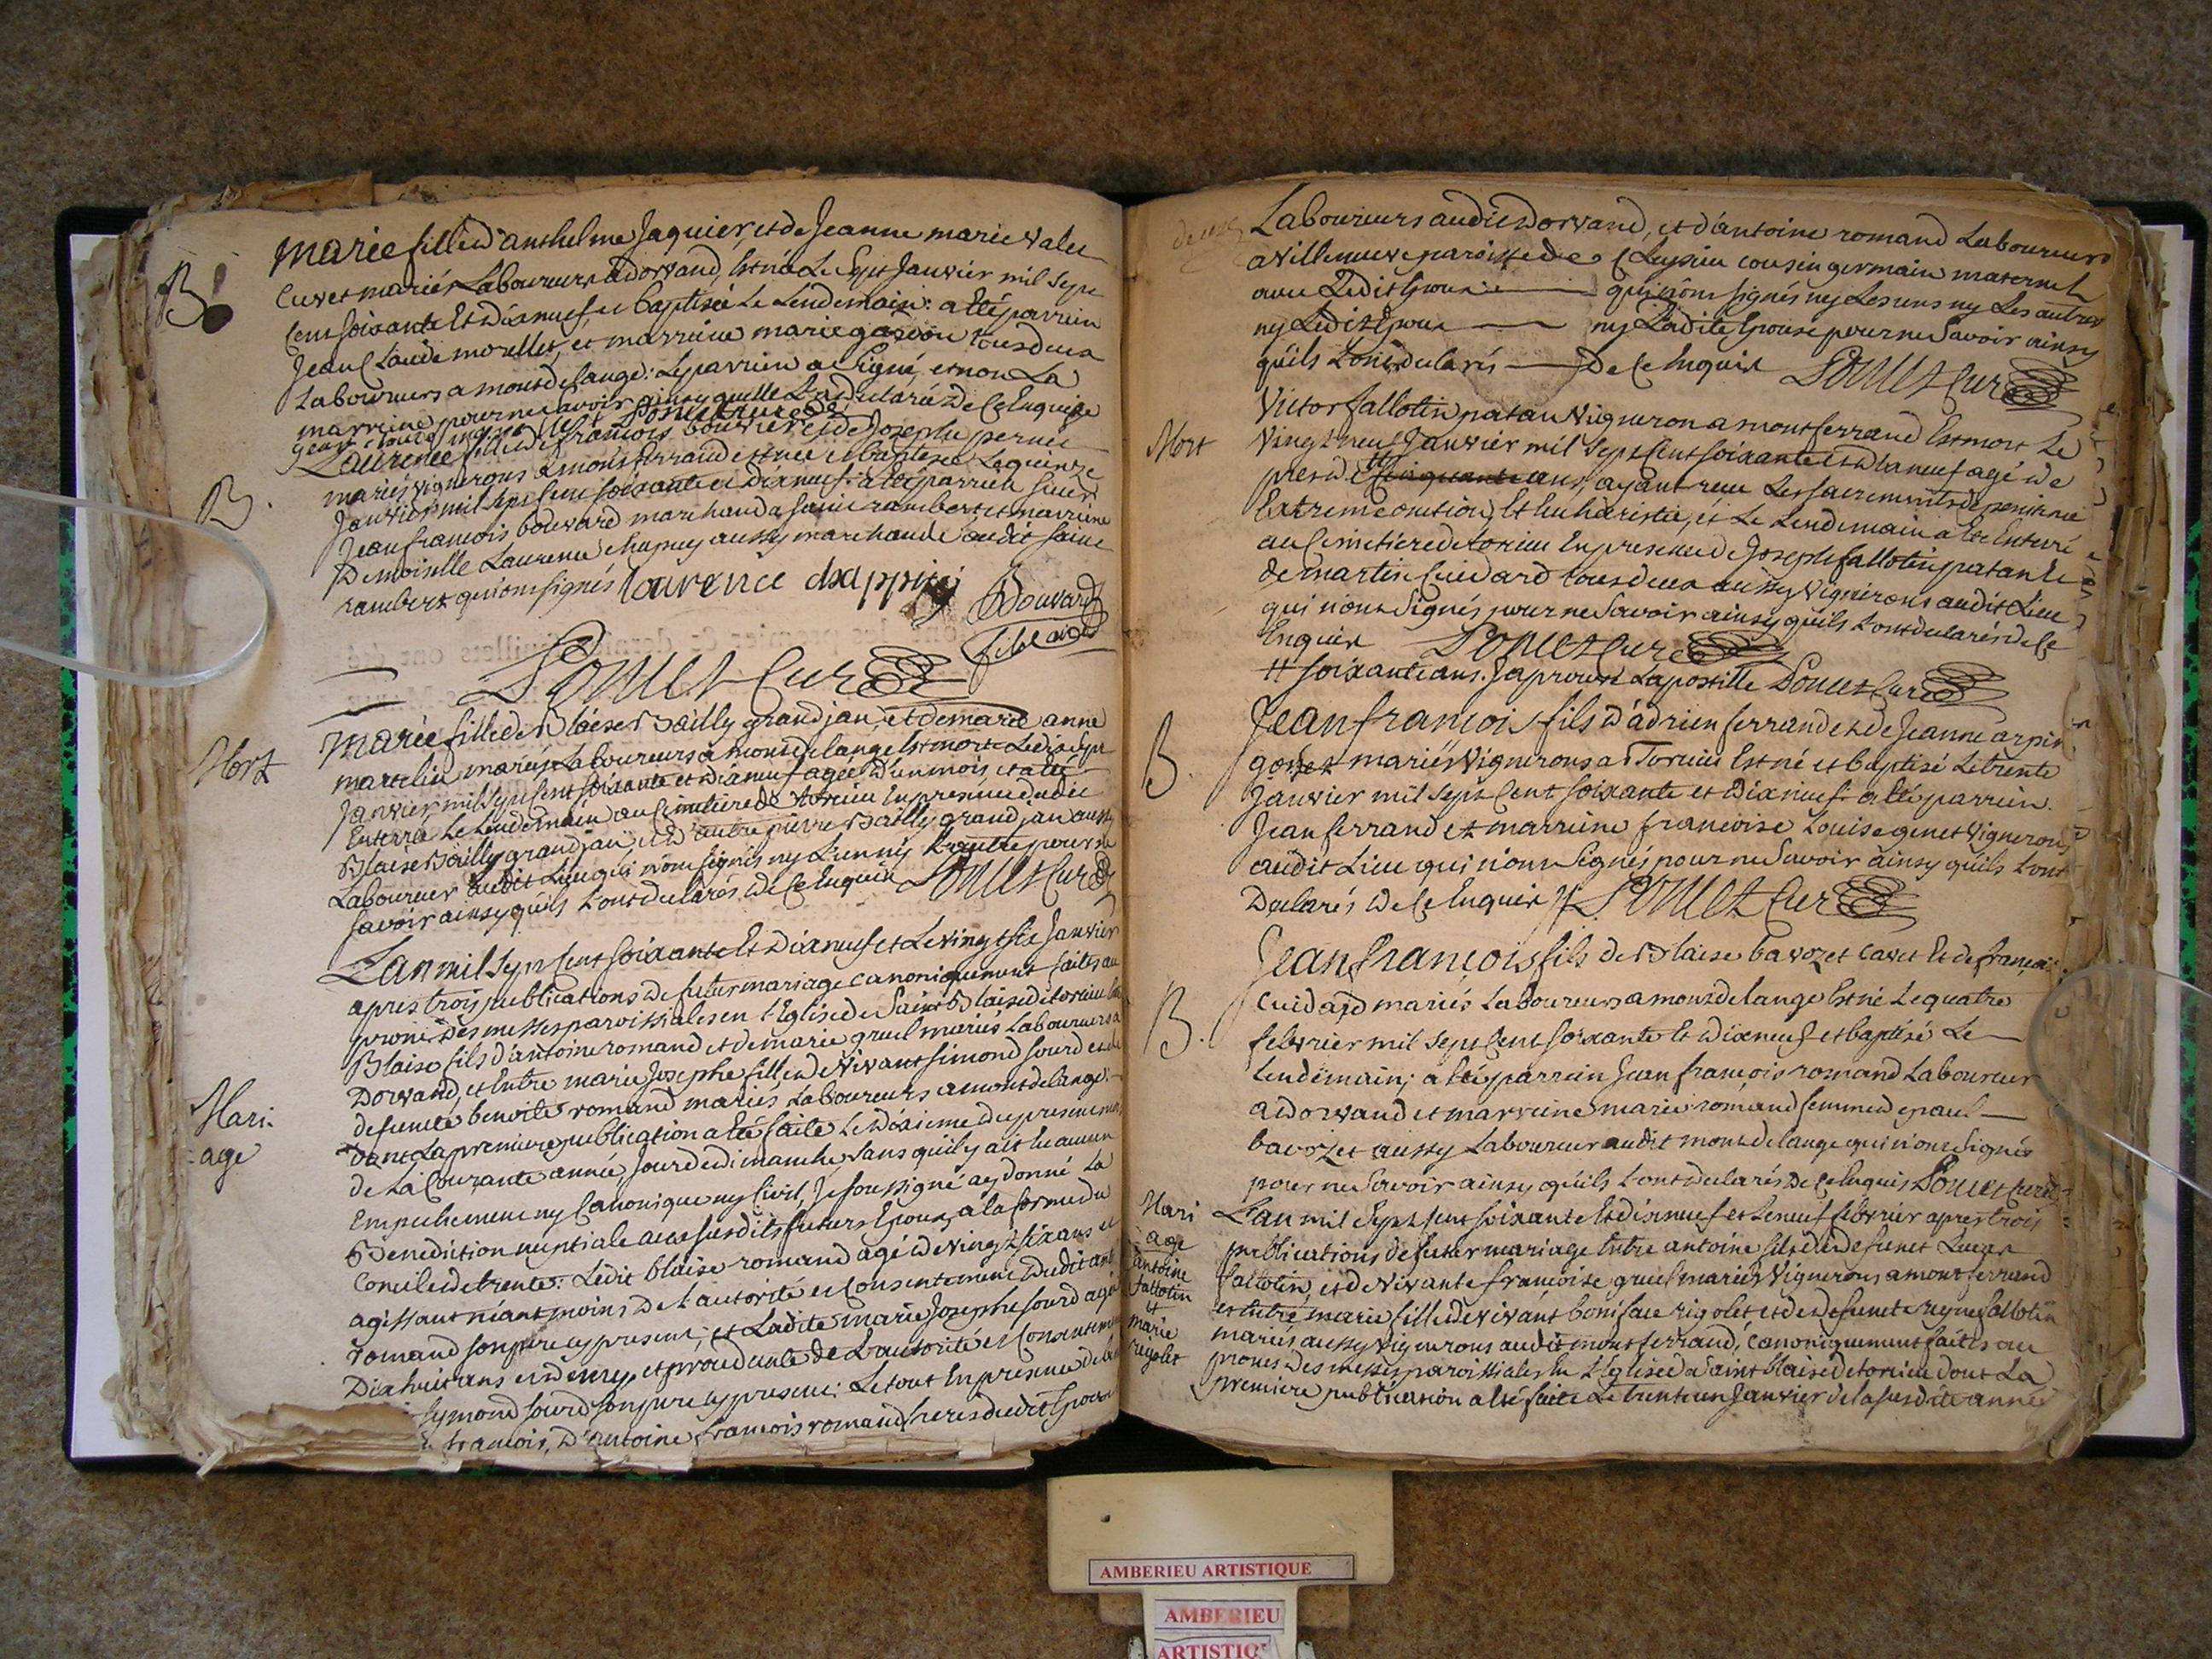 B
Marie fille d'anthelme Jaquier, et de Jeanne marie valen
Cuvet mariés Laboureurs a dorvand, Est née Le Sept Janvier mil Sept
Cent soixante Et Dixneuf et baptisée Le Lendemain: a Eté parrein
Jean Claude morellet, et marreine marie gascon tous deux
Laboureurs a montdelange: Le parrein a Signé, et non La
marreine pour ne Savoir ainsy quelle L'a declaré de Ce Enquise
Jean Claude Ponset Curé
B.
Laurence fille de françois bouvier et de Josephe pernet
mariés vignerons a montferrand est née et baptisée Le quinze
Janvier mil Sept Cent soixante et dixneuf: a Eté parrein sieur
Jean françois bouvard marchand a saint rambert et marreine
Demoiselle Laurence chapuy aussy marchande audit saint
rambert qui ont signés laurence chappuy Bouvard
fils ainé
Ponset Curé
Mort
Marie fille de Blaise Bailly grandjan, et de marie anne
marcelin mariés Laboureurs a montdelange Est morte Le dix Sept
Janvier mil Sept Cent soixante et dixneuf agée d'un mois, et a Eté
Enterrée Le Lendemain au Cimetiere de torcieu En presence dudit
Blaise Bailly grandjan, et d'autre pierre Bailly grandjan aussy
Laboureur audit Lieu qui n'ont signés ny L'un ny L'autre pour ne
savoir ainsy qu'ils L'ont declarés de Ce Enquis Ponset Curé
Mari-
-age
L'an mil Sept Cent soixante Et dixneuf et Le vingt six Janvier
apres trois publications de futur mariage canoniquement faites au
prone des messes paroissiales en L'Eglise de Saint Blaise de torcieu Entre
Blaise fils d'antoine romand et de marie gruel mariés Laboureurs a
Dorvand, et Entre marie Josephe fille de vivant simond sourd et de
defuncte benoite romand mariés Laboureurs a montdelange:
dont La premiere publication a Eté faite Le dixieme du present mois
de La Courante année, Jour de dimanche, sans qu'il y ait Eu aucun
Empechement ny Canonique ny Civil, Je soussigné ay donné La
Benediction nuptiale aux susdits futurs Epoux, a la forme du
Concile de trente: Ledit blaise romand agé de vingt six ans et
agissant néantmoins de L'autorité et Consentement dudit antoine
romand son pere cy present; et Ladite marie Josephe sourd agée
Dix huit ans et demy, et procedante de L'autorité et Consentement
symond sourd son pere cy present: Le tout En presence de
françois, d'antoine françois romand freres dudit Epoux
Laboureurs audit dorvand, et d'antoine romand Laboureurs
a villeneuve paroisse de Cleyzieu cousin germain maternel
avec Ledit Epoux — qui n'ont signés ny Les uns ny Les autres
ny Ledit Epoux — ny Ladite Epouse pour ne Savoir ainsy
qu'ils L'ont declarés — de Ce Enquis Ponset Curé
Mort
Victor fallotin patan vigneron a montferrand Est mort Le
vingt neuf Janvier mil Sept Cent soixante et dixneuf agé de
pres de # cinquante ans, ayant receu Les sacrements de penitence
Extreme onction, Et Eucharistie, et Le Lendemain a Eté Enterré
au Cimetiere de torcieu En presence de Joseph fallotin patan Et
de martin Cuidard tous deux aussy vignerons audit Lieu
qui n'ont Signés pour ne Savoir ainsy qu'ils L'ont declarés de Ce
Enquis Ponset Curé
# soixante ans. J'aprouve L'apostille Ponset Curé
B.
Jean françois fils d'adrien ferrand et de Jeanne arpin
gonet mariés vignerons a Torcieu Est né et baptisé Le trente
Janvier mil Sept Cent soixante et dixneuf: a Eté parrein
Jean ferrand et marreine françoise Louise genet vignerons
audit Lieu qui n'ont Signés pour ne Savoir ainsy qu'ils L'ont
Declarés de Ce Enquis Ponset Curé
B.
Jean françois fils de Blaise bavozet cavet Et de françoise
Cuidard mariés Laboureurs a montdelange Est né Le quatre
febvrier mil Sept Cent soixante Et dixneuf et baptisé Le —
Lendemain; a Eté parrein Jean françois romand Laboureur
a dorvand et marreine marie romand femme de paul —
bavozet aussy Laboureur audit montdelange qui n'ont Signés
pour ne Savoir ainsy qu'ils L'ont declarés de Ce Enquis Ponset Curé
Mari
age
antoine
fallotin
et
marie
rigolet
L'an mil Sept Cent soixante Et dixneuf et Le neuf febvrier apres trois
publications de futur mariage Entre antoine fils de defunct Lucas
fallotin, et de vivante françoise gruel mariés vignerons a montferrand
et Entre marie fille de vivant boniface rigolet, et de defuncte reyne fallotin
mariés aussy vignerons audit montferrand, canoniquement faites au
prones des messes paroissiales En L'Eglise de saint blaise de torcieu dont La
premiere publication a Eté faite Le trente un Janvier de la susdite année
AMBERIEU ARTISTIQUE
AMBERIEU
ARTISTIQ